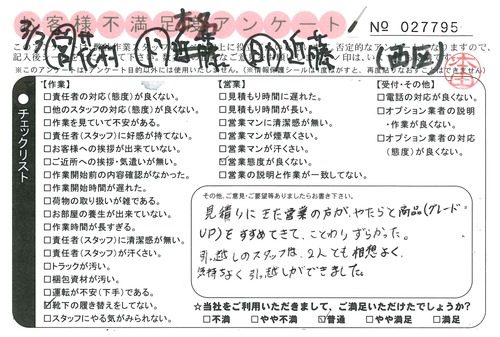 お客様不満足度アンケート
№ 027795
(西図)
●チェックリスト
【作業】
□責任者の対応(態度)が良くない。
□他のスタッフの対応(態度)が良くない。
□作業を見ていて不安がある。
□責任者(スタッフ)に好感が持てない。
□お客様への挨拶が出来ていない。
□ご近所への挨拶・気遣いが無い。
□作業開始前の内容確認がなかった。
□作業開始時間が遅れた。
□荷物の取り扱いが雑である。
□お部屋の養生が出来ていない。
□作業時間が長すぎる。
□責任者(スタッフ)に清潔感が無い。
□責任者(スタッフ)が汗くさい。
□トラックが汚い。
□梱包資材が汚い。
□運転が不安(下手)である。
☑靴下の履き替えをしてない。
□スタッフにやる気がみられない。
【営業】
□見積もり時間に遅れた。
□見積もり時間が長い。
□営業マンに清潔感が無い。
□営業マンが煙草くさい。
□営業マンが汗くさい。
☑営業態度が良くない。
□営業の説明と作業が一致してない。
【受付・その他】
□電話の対応が良くない。
□オプション業者の説明・作業が良くない。
□オプション業者の対応(態度)が良くない。
その他、ご意見・ご要望等ありましたらお書き下さい。
見積りにきた営業の方が、やたらと商品(グレードUP)をすすめてきて、ことわりずらかった。
引っ越しのスタッフは、2人とも相想よく、
気持ちよく引っ越しができました。
☆当社をご利用いただきまして、ご満足いただけたでしょうか?
□不満 □やや不満 ☑普通 □やや満足 □満足